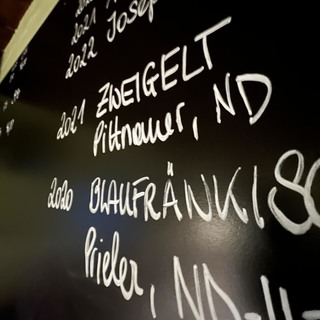 2021
2022 Josep
2021 ZWEIGELT
Pittnauer, ND
2020 BLAUFRÄNKISC
Prieler, ND-II-